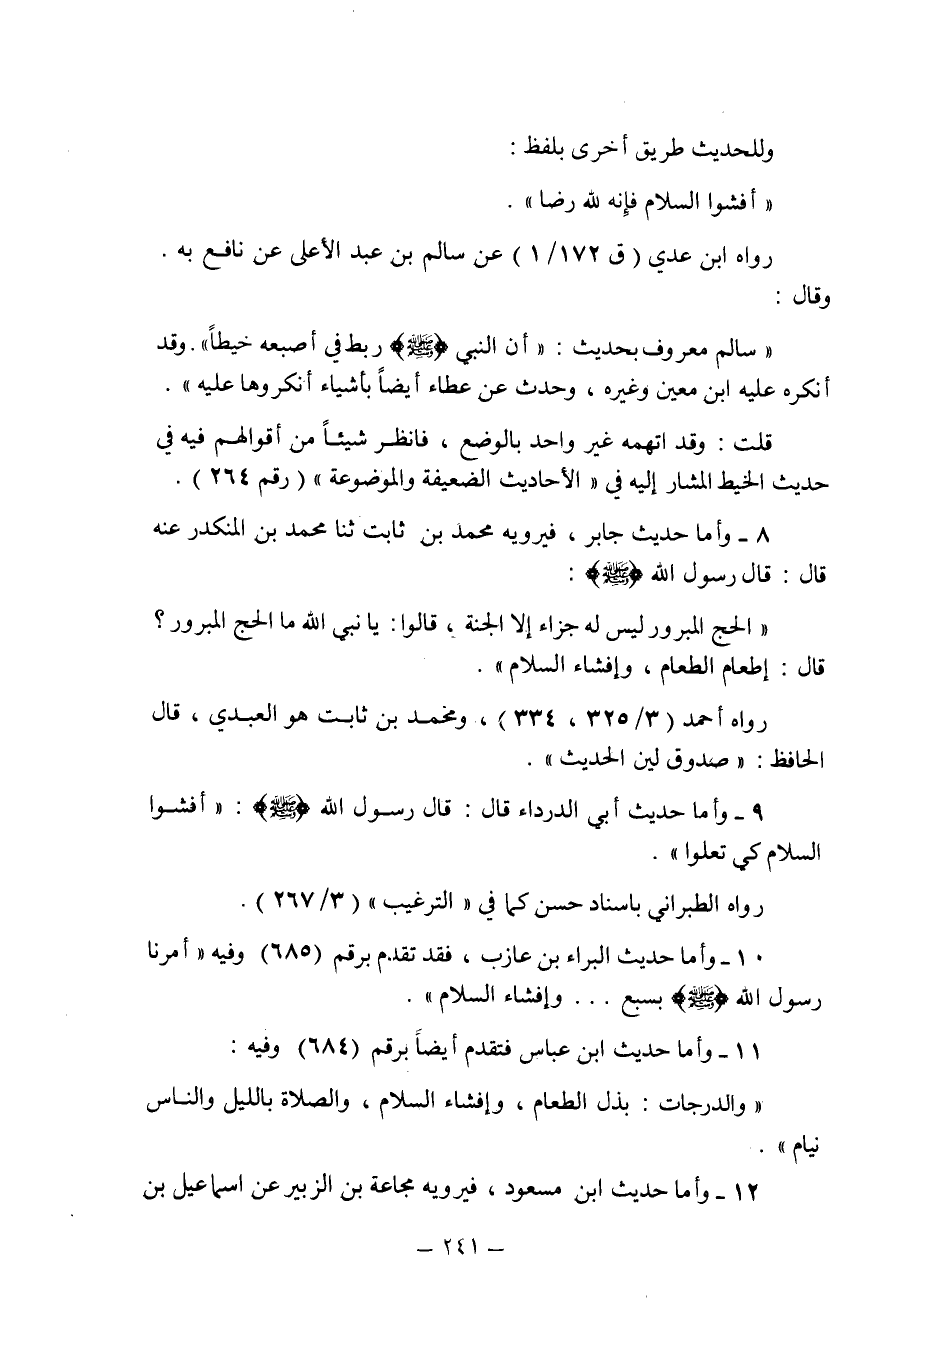 وللحديث طريق أخرى بلفظ :
« أفشوا السلام فإنه لله رضا » .
رواه ابن عدي ( ق ١٧٢/ ١ ) عن سالم بن عبد الأعلى عن نافع به .
وقال :
« سالم معروف بحديث : « أن النبي ﴿ﷺ﴾ ربط في أصبعه خيطاً» . وقد
أنكره عليه ابن معين وغيره ، وحدث عن عطاء أيضاً بأشياء أنكروها عليه » .
قلت : وقد اتهمه غير واحد بالوضع ، فانظر شيئاً من أقوالهم فيه في
حديث الخيط المشار إليه في « الأحاديث الضعيفة والموضوعة » ( رقم ٢٦٤ ) .
٨ ـ وأما حديث جابر ، فيرويه محمد بن ثابت ثنا محمد بن المنكدر عنه
قال : قال رسول الله ﴿ﷺ﴾ :
« الحج المبرور ليس له جزاء إلا الجنة ، قالوا : يا نبي الله ما الحج المبرور ؟
قال : إطعام الطعام ، وإفشاء السلام » .
رواه أحمد ( ٣/ ٣٢٥ ، ٣٣٤ ) ، ومحمد بن ثابت هو العبدي ، قال
الحافظ : « صدوق لين الحديث » .
٩ ـ وأما حديث أبي الدرداء قال : قال رسول الله ﴿ﷺ﴾ : « أفشوا
السلام كي تعلوا » .
رواه الطبراني باسناد حسن كما في « الترغيب » ( ٣/ ٢٦٧ ) .
١٠ ـ وأما حديث البراء بن عازب ، فقد تقدم برقم (٦٨٥) وفيه « أمرنا
رسول الله ﴿ﷺ﴾ بسبع . . . وإفشاء السلام » .
١١ ـ وأما حديث ابن عباس فتقدم أيضاً برقم (٦٨٤) وفيه :
« والدرجات : بذل الطعام ، وإفشاء السلام ، والصلاة بالليل والناس
نيام » .
١٢ ـ وأما حديث ابن مسعود ، فيرويه مجاعة بن الزبير عن اسماعيل بن
– ٢٤١ –